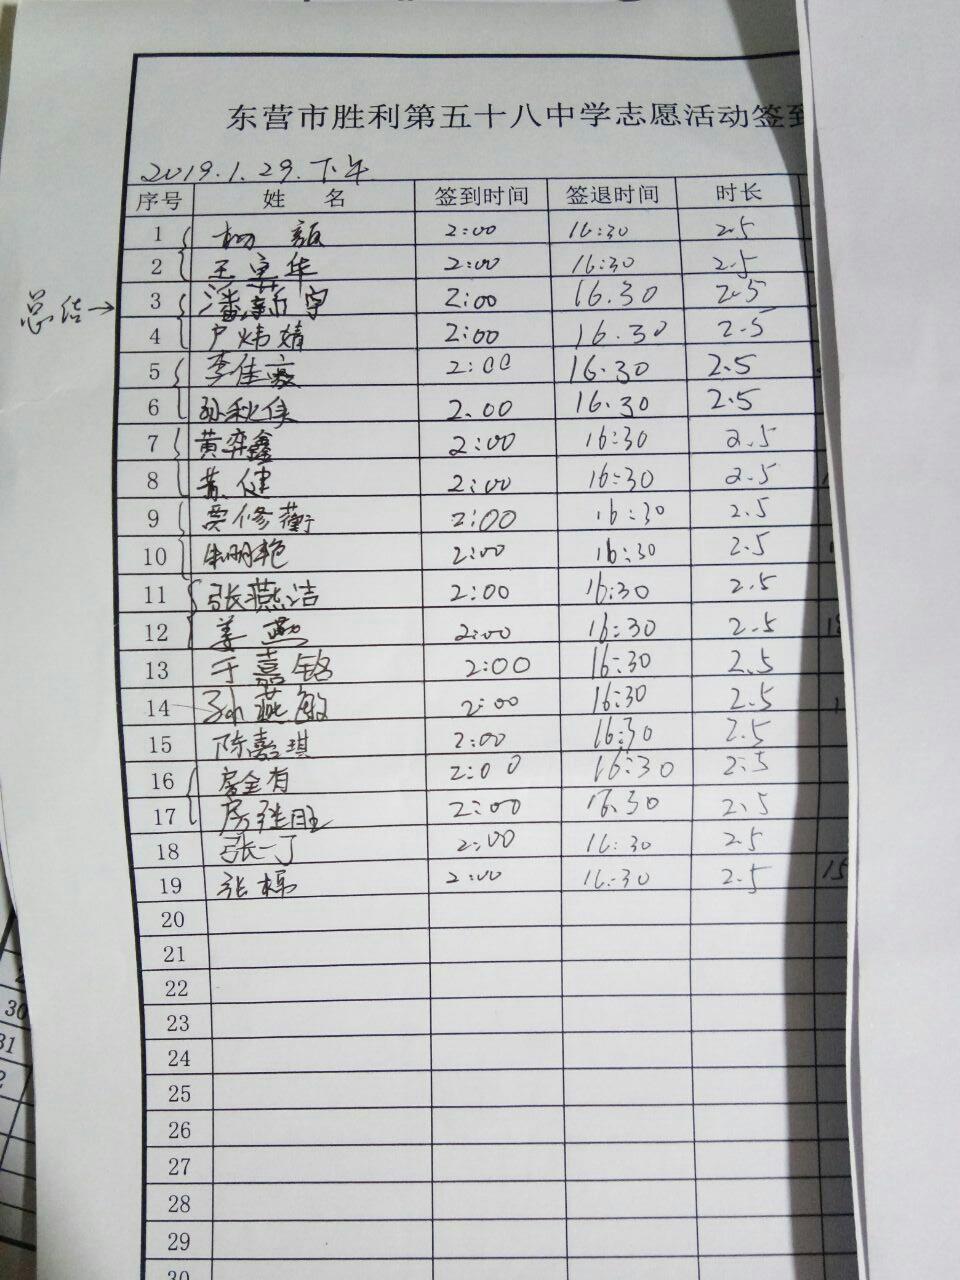 东营市胜利第五十八中学志愿活动签到
2019.1.29.下午
序号 姓 名 签到时间 签退时间 时长
1 杨 颖 2:00 16:30 2.5
2 王 华 2:00 16:30 2.5
总结→ 3 潘新宇 2:00 16.30 2.5
4 卢炜婧 2:00 16.30 2.5
5 李佳 2:00 16.30 2.5
6 孙秋侠 2.00 16.30 2.5
7 黄弈鑫 2:00 16:30 2.5
8 黄健 2:00 16:30 2.5
9 贾修蘅 2:00 16:30 2.5
10 朱明艳 2:00 16:30 2.5
11 张燕洁 2:00 16:30 2.5
12 姜燕 2:00 16:30 2.5
13 于嘉铭 2:00 16:30 2.5
14 孙燕敏 2:00 16:30 2.5
15 陈嘉琪 2:00 16:30 2.5
16 房金有 2:00 16:30 2.5
17 房 旺 2:00 16.30 2.5
18 张一丁 2:00 16:30 2.5
19 张栋 2:00 16:30 2.5 15
20
21
22
23
24
25
26
27
28
29
30
30
31